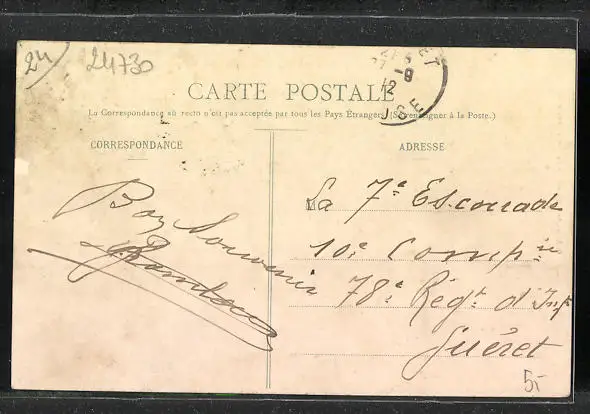 24
24730
CARTE POSTALE
La Correspondance au recto n'est pas acceptée par tous les Pays Étrangers (Se renseigner à la Poste.)
CORRESPONDANCE
ADRESSE
Bon Souvenir
La 7e Escouade
10e Compie
78e Régt d'Inf
Guéret
5-